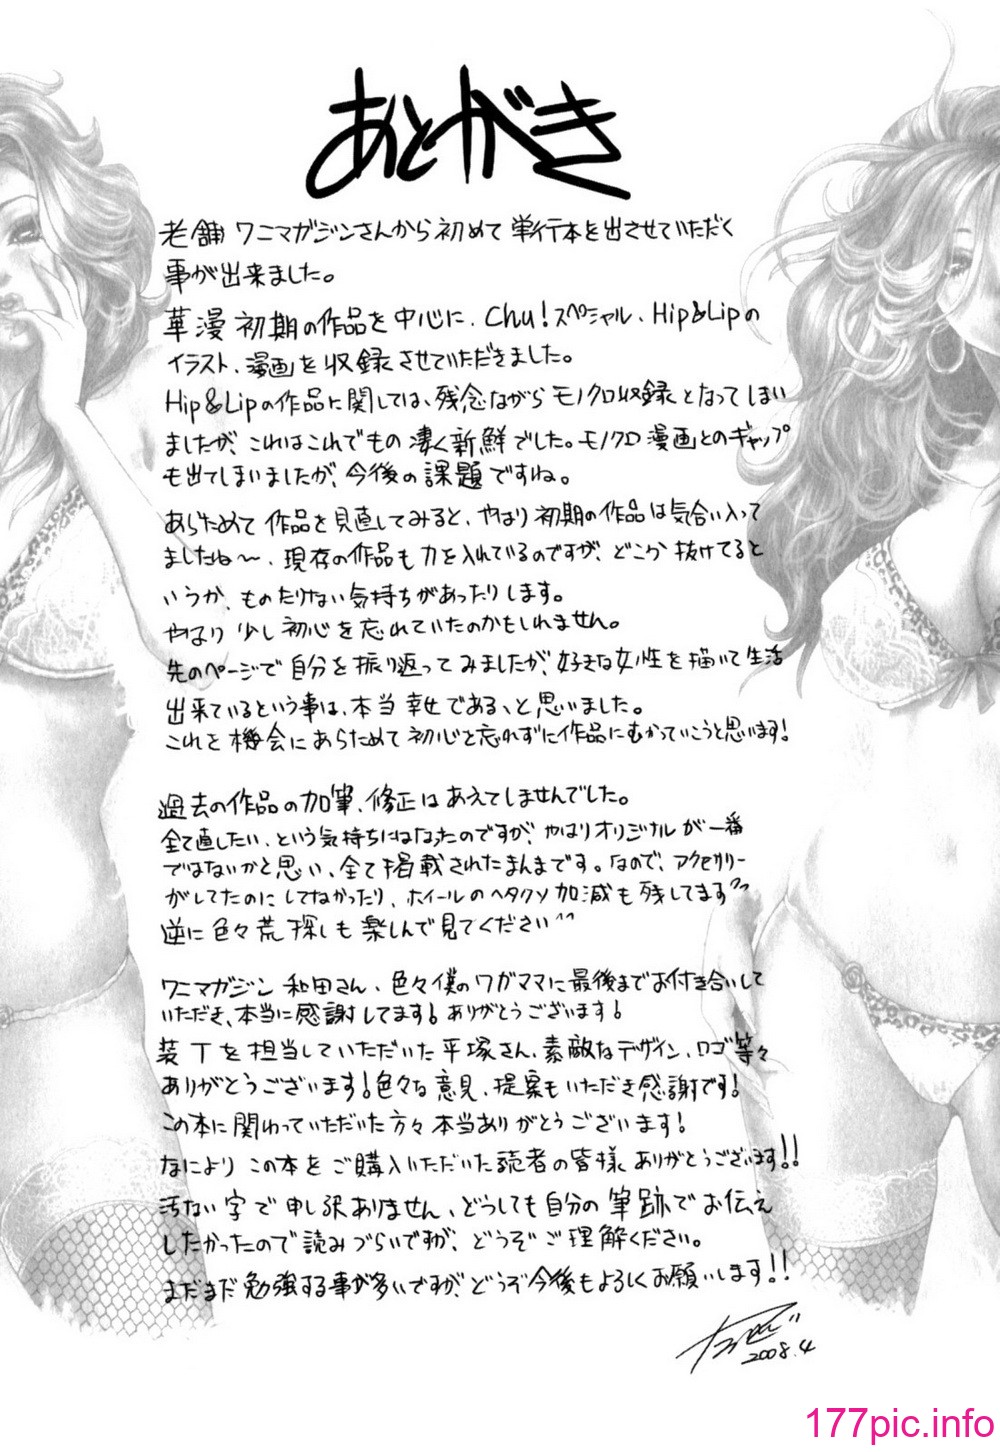 あとがき
老舗ワニマガジンさんから初めて単行本を出させていただく
事が出来ました。
革漫初期の作品を中心に、Chu!スペシャル、Hip&Lipの
イラスト、漫画を収録させていただきました。
Hip&Lipの作品に関しては、残念ながらモノクロ収録となってしまい
ましたが、これはこれでもの凄く新鮮でした。モノクロ漫画とのギャップ
も出てしまいましたが、今後の課題ですね。
あらためて作品を見直してみると、やはり初期の作品は気合い入って
ましたね〜、現存の作品も力を入れているのですが、どこか抜けてると
いうか、ものたりない気持ちがあったりします。
やはり少し初心を忘れていたのかもしれません。
先のページで自分を振り返ってみましたが、好きな女性を描いて生活
出来ているという事は、本当幸せである、と思いました。
これを機会にあらためて初心を忘れずに作品にむかっていこうと思います!
過去の作品の加筆、修正はあえてしませんでした。
全て直したい、という気持ちにはなったのですが、やはりオリジナルが一番
ではないかと思い、全て掲載されたまんまです。なので、アクセサリー
がしてたのにしてなかったり、ホイールのヘタクソ加減も残してます^^
逆に色々荒探しも楽しんで見てください^^
ワニマガジン和田さん、色々僕のワガママに最後までお付き合いして
いただき、本当に感謝してます!ありがとうございます!
装丁を担当していただいた平塚さん、素敵なデザイン、ロゴ等々
ありがとうございます!色々な意見、提案もいただき感謝です!
この本に関わっていただいた方々本当ありがとうございます!
なによりこの本をご購入いただいた読者の皆様ありがとうございます!!
汚ない字で申し訳ありません、どうしても自分の筆跡でお伝え
したかったので読みづらいですが、どうぞご理解ください。
まだまだ勉強する事が多いですが、どうぞ今後もよろしくお願いします!!
2008.4
177pic.info